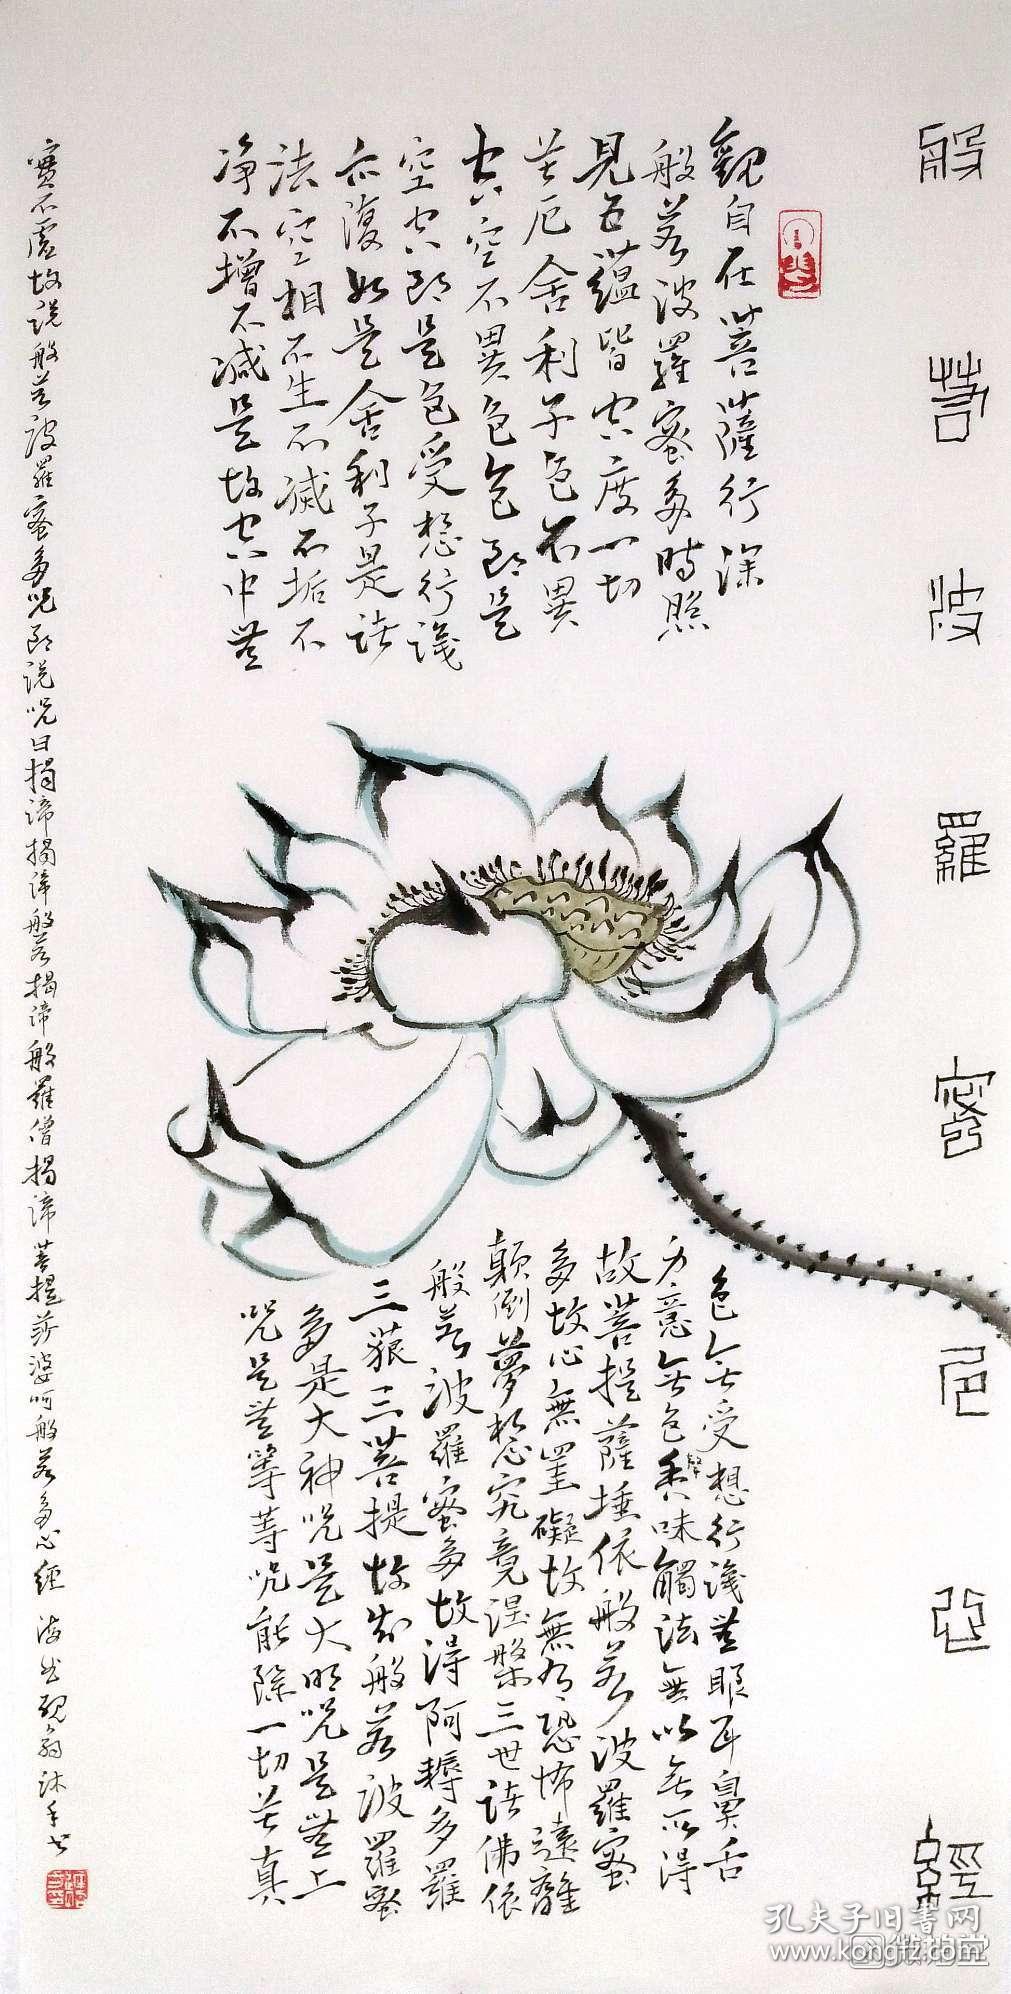 般若波羅蜜多心經
觀自在菩薩行深
般若波羅蜜多時照
見五蘊皆空度一切
苦厄舍利子色不異
空空不異色色即是
空空即是色受想行識
亦復如是舍利子是諸
法空相不生不滅不垢不
净不增不減是故空中無
色無受想行識無眼耳鼻舌
身意無色聲香味觸法無以無所得
故菩提薩埵依般若波羅蜜
多故心無罣礙故無有恐怖遠離
顛倒夢想究竟涅槃三世諸佛依
般若波羅蜜多故得阿耨多羅
三藐三菩提故知般若波羅蜜
多是大神咒是大明咒是無上
咒是無等等咒能除一切苦真
實不虛故説般若波羅蜜多咒即説咒曰揭諦揭諦般若揭諦般羅僧揭諦菩提莎婆呵般若多心經 海 硯翁沐手书
孔夫子旧书网
www.kongfz.com